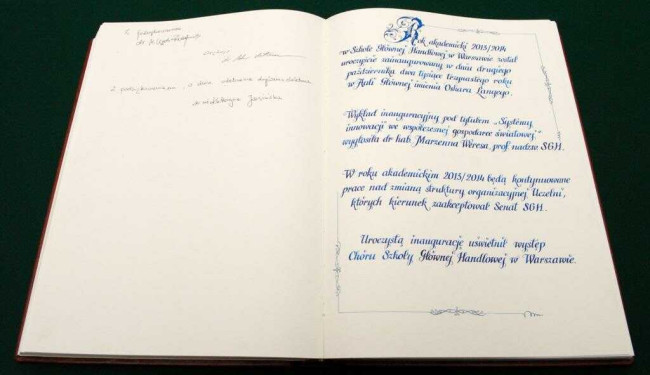 Z podziękowaniem
Z podziękowaniem
Rok akademicki 2013/2014
w Szkole Głównej Handlowej w Warszawie został
uroczyście zainaugurowany w dniu drugiego
października dwa tysiące trzynastego roku
w Auli Głównej imienia Oskara Langego.
Wykład inauguracyjny pod tytułem „Systemy
innowacji we współczesnej gospodarce światowej”
wygłosiła dr hab. Marzenna Weresa, prof. nadzw. SGH.
W roku akademickim 2013/2014 będą kontynuowane
prace nad zmianą struktury organizacyjnej Uczelni,
których kierunek zaakceptował Senat SGH.
Uroczystą inaugurację uświetnił występ
Chóru Szkoły Głównej Handlowej w Warszawie.